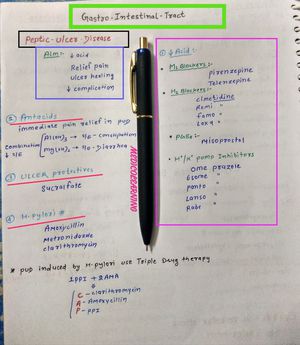 Gastro-Intestinal-Tract
Peptic-Ulcer-Disease
Aim:- ↓ acid
Relief pain
Ulcer healing
↓ complication
① ↓ Acid:-
M₁ Blockers:-
pirenzepine
Telenzepine
H₂ Blockers:-
cimetidine
Rani "
Famo "
Loxa "
PGEs:-
Misoprostol
H⁺/K⁺ pump Inhibitors
Ome prazole
Esome "
panto "
Lanso "
Rabe "
② Antacids
immediate pain relief in pud
Combination
↓ S/E
Al(OH)₃ → S/E - constipation
Mg(OH)₂ → S/E - Diarrhea
③ ULCER protectives
Sucralfate
④ H-pylori #
Amoxycillin
Metronidazole
clarithromycin
* pud induced by H-pylori use Triple Drug therapy
1PPI + 2AMA
↓
C - clarithromycin
A - Amoxycillin
P - PPI
MEDICOLEARNING